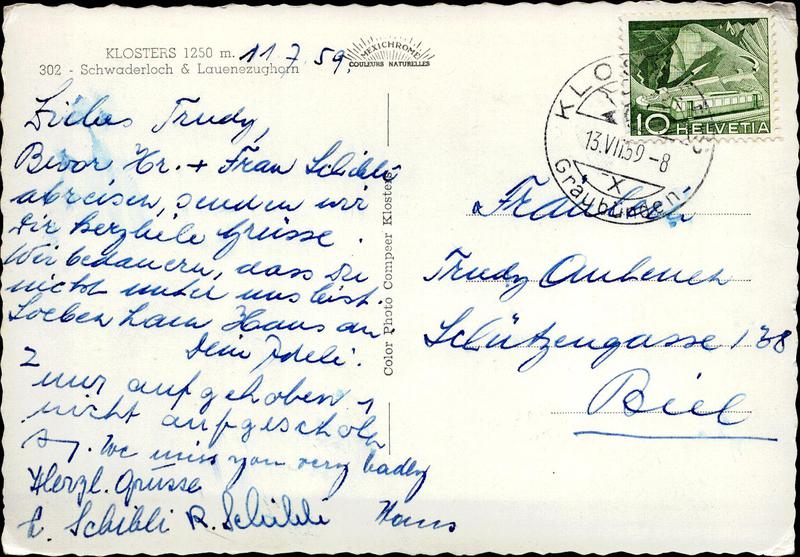 KLOSTERS 1250 m.
302 - Schwaderloch & Lauenezughorn
11.7.59.
MEXICHROME
COULEURS NATURELLES
Liebes Trudy,
Bevor Hr. + Frau Schibli
abreisen, senden wir
Dir herzliche Grüsse.
Wir bedauern, dass Du
nicht unter uns bist.
Soeben kam Hans an.
Dein Ideli.
nur aufgehoben,
nicht aufgeschoben
We miss you very badly
Herzl. Grüsse
E. Schibli R. Schibli Hans
Color Photo Compeer Klosters
10 HELVETIA
KLOSTERS
13.VII.59-8
X
Graubünden
Fräulein
Trudy
Schützengasse 138
Biel